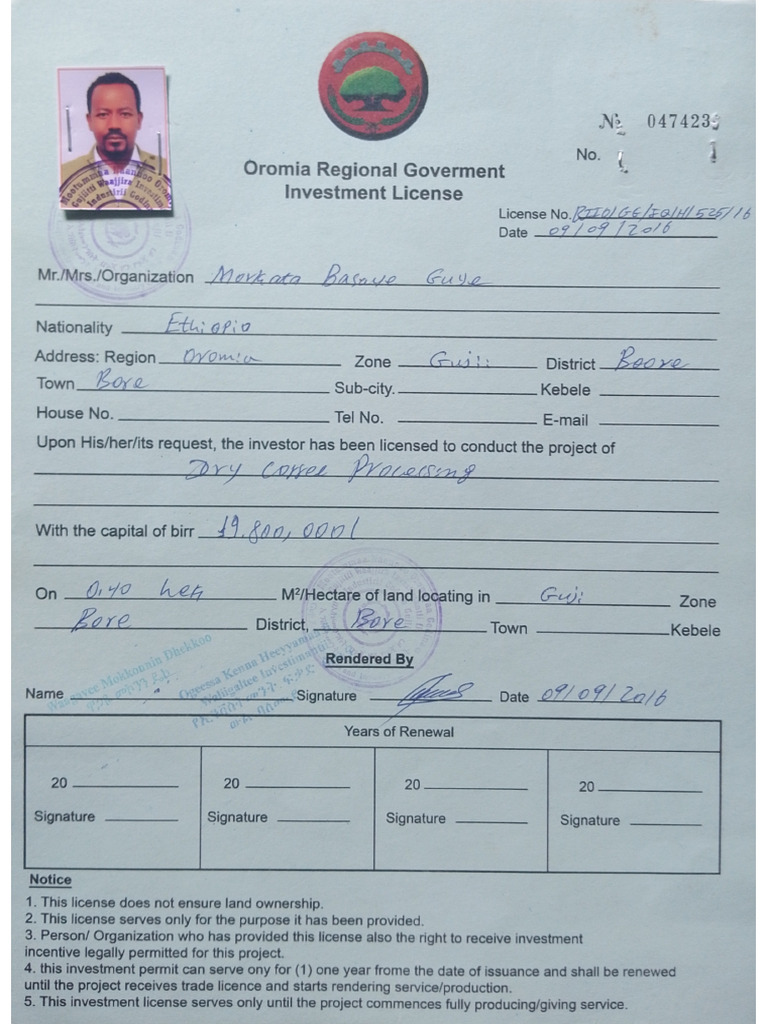 № 047423
No.
Oromia Regional Goverment
Investment License
License No. /GE/ /H/525/16
Date 09/09/2016
Mr./Mrs./Organization Morkata Basaye Guye
Nationality Ethiopia
Address: Region Oromia Zone Guji District Boore
Town Bore Sub-city. Kebele
House No. Tel No. E-mail
Upon His/her/its request, the investor has been licensed to conduct the project of
Dry Coffee Processing
With the capital of birr 19.800,000/
On 0.40 hek M²/Hectare of land locating in Guji Zone
Bore District, Bore Town Kebele
Rendered By
Waaqayee Mokkonnin Dhekkoo
Ogeessa Kenna Heeyyamaa
Walligaltee Investimantii
Name Signature Date 09/09/2016
Years of Renewal
20 20 20 20
Signature Signature Signature Signature
Notice
1. This license does not ensure land ownership.
2. This license serves only for the purpose it has been provided.
3. Person/ Organization who has provided this license also the right to receive investment
incentive legally permitted for this project.
4. this investment permit can serve ony for (1) one year frome the date of issuance and shall be renewed
until the project receives trade licence and starts rendering service/production.
5. This investment license serves only until the project commences fully producing/giving service.